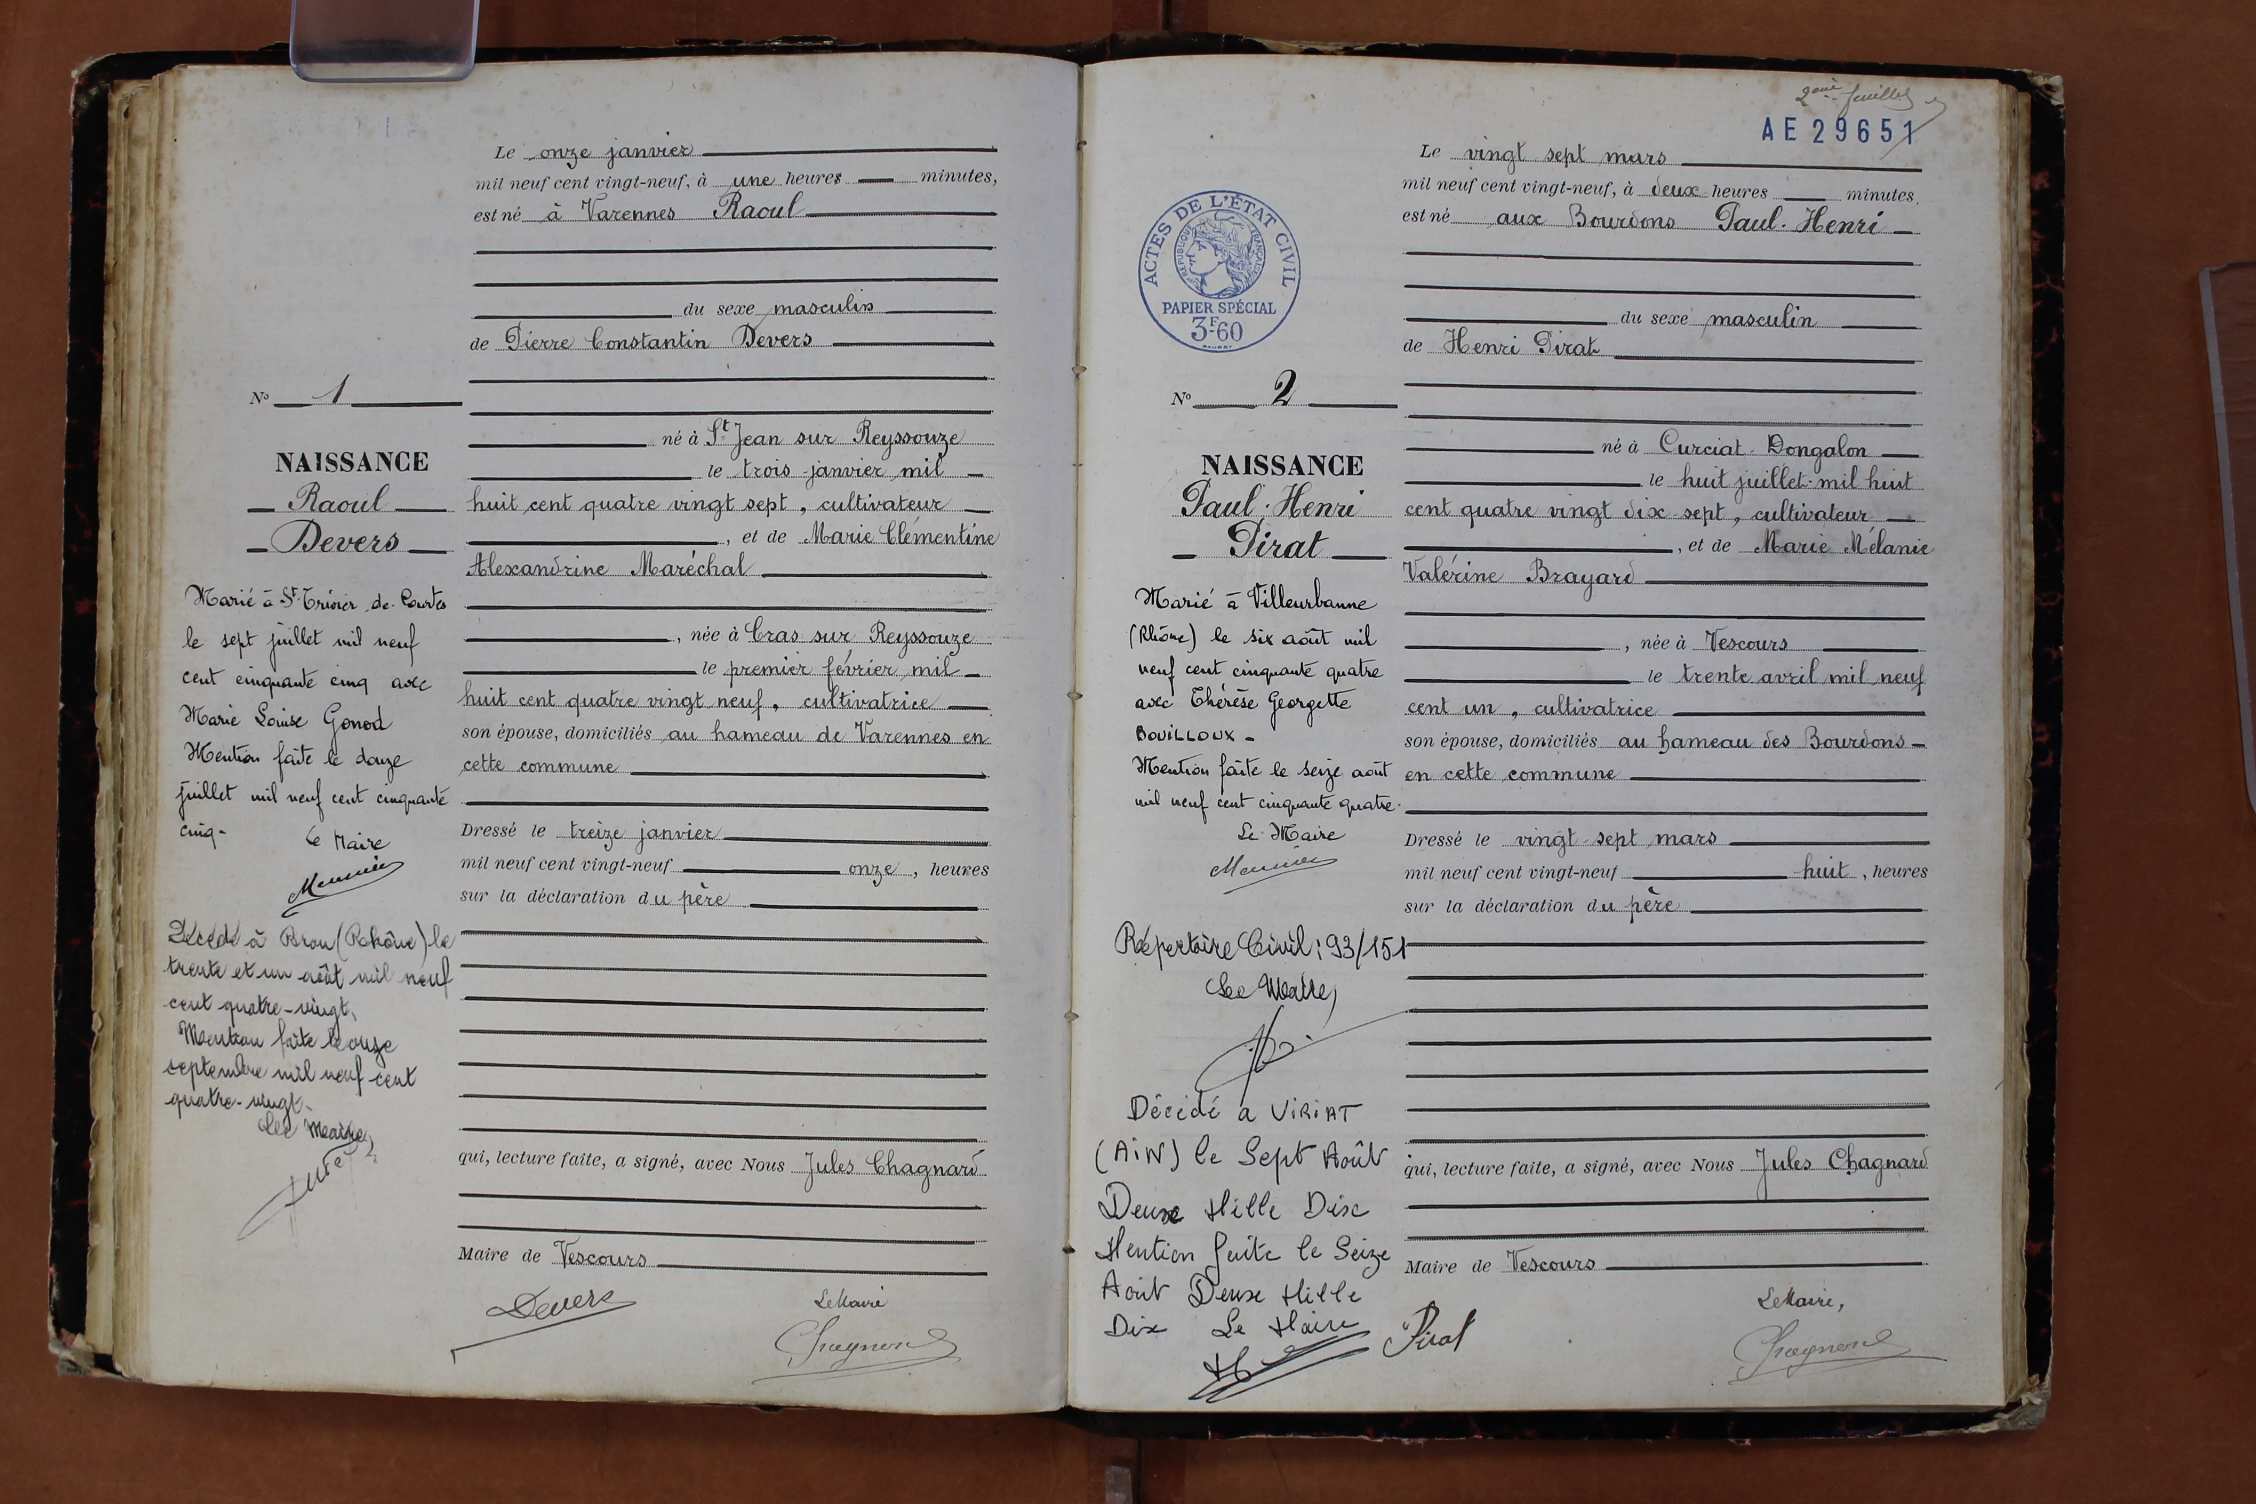 Le onze janvier
mil neuf cent vingt-neuf, à une heures minutes,
est né à Varennes Raoul
du sexe masculin
de Pierre Constantin Devers
né à St Jean sur Reyssouze
le trois janvier mil
huit cent quatre vingt sept, cultivateur
, et de Marie Clémentine
Alexandrine Maréchal
, née à Cras sur Reyssouze
le premier février mil
huit cent quatre vingt neuf, cultivatrice
son épouse, domiciliés au hameau de Varennes en
cette commune
Dressé le treize janvier
mil neuf cent vingt-neuf onze, heures
sur la déclaration du père
qui, lecture faite, a signé, avec Nous Jules Chagnard
Maire de Vescours
Devers
Le Maire
Chagnard
No 1
NAISSANCE
Raoul
Devers
Marié à St-Trivier-de-Courtes
le sept juillet mil neuf
cent cinquante cinq avec
Marie Louise Gonod
Mention faite le douze
juillet mil neuf cent cinquante
cinq-
Le Maire
Meunier
Décédé à Bron (Rhône) le
trente et un août mil neuf
cent quatre-vingt,
Mention faite le onze
septembre mil neuf cent
quatre-vingt.
Le Maire,
2eme feuillet
AE 29651
ACTES DE L'ÉTAT CIVIL
RÉPUBLIQUE FRANÇAISE
PAPIER SPÉCIAL
3F-60
No 2
NAISSANCE
Paul-Henri
Pirat
Marié à Villeurbanne
(Rhône) le six août mil
neuf cent cinquante quatre
avec Thérèse Georgette
BOUILLOUX-
Mention faite le seize août
mil neuf cent cinquante quatre.
Le Maire
Meunier
Répertoire Civil: 93/151
Le Maire,
Décédé a VIRIAT
(AIN) le Sept Août
Deux Mille Dix
Mention faite le Seize
Août Deux Mille
Dix Le Maire
Le vingt sept mars
mil neuf cent vingt-neuf, à deux heures minutes,
est né aux Bourdons Paul-Henri
du sexe masculin
de Henri Pirat
né à Curciat-Dongalon
le huit juillet mil huit
cent quatre vingt dix-sept, cultivateur
, et de Marie Mélanie
Valérine Brayard
, née à Vescours
le trente avril mil neuf
cent un, cultivatrice
son épouse, domiciliés au hameau des Bourdons
en cette commune
Dressé le vingt-sept mars
mil neuf cent vingt-neuf huit, heures
sur la déclaration du père
qui, lecture faite, a signé, avec Nous Jules Chagnard
Maire de Vescours
Pirat
Le Maire,
Chagnard